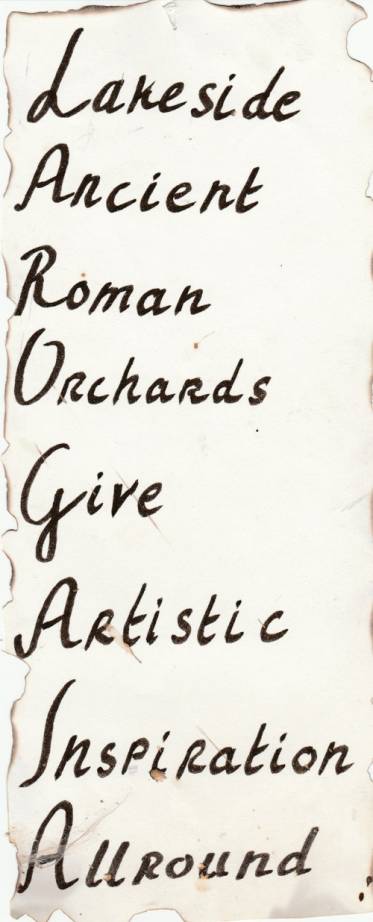 Lakeside
Ancient
Roman
Orchards
Give
Artistic
Inspiration
Allround